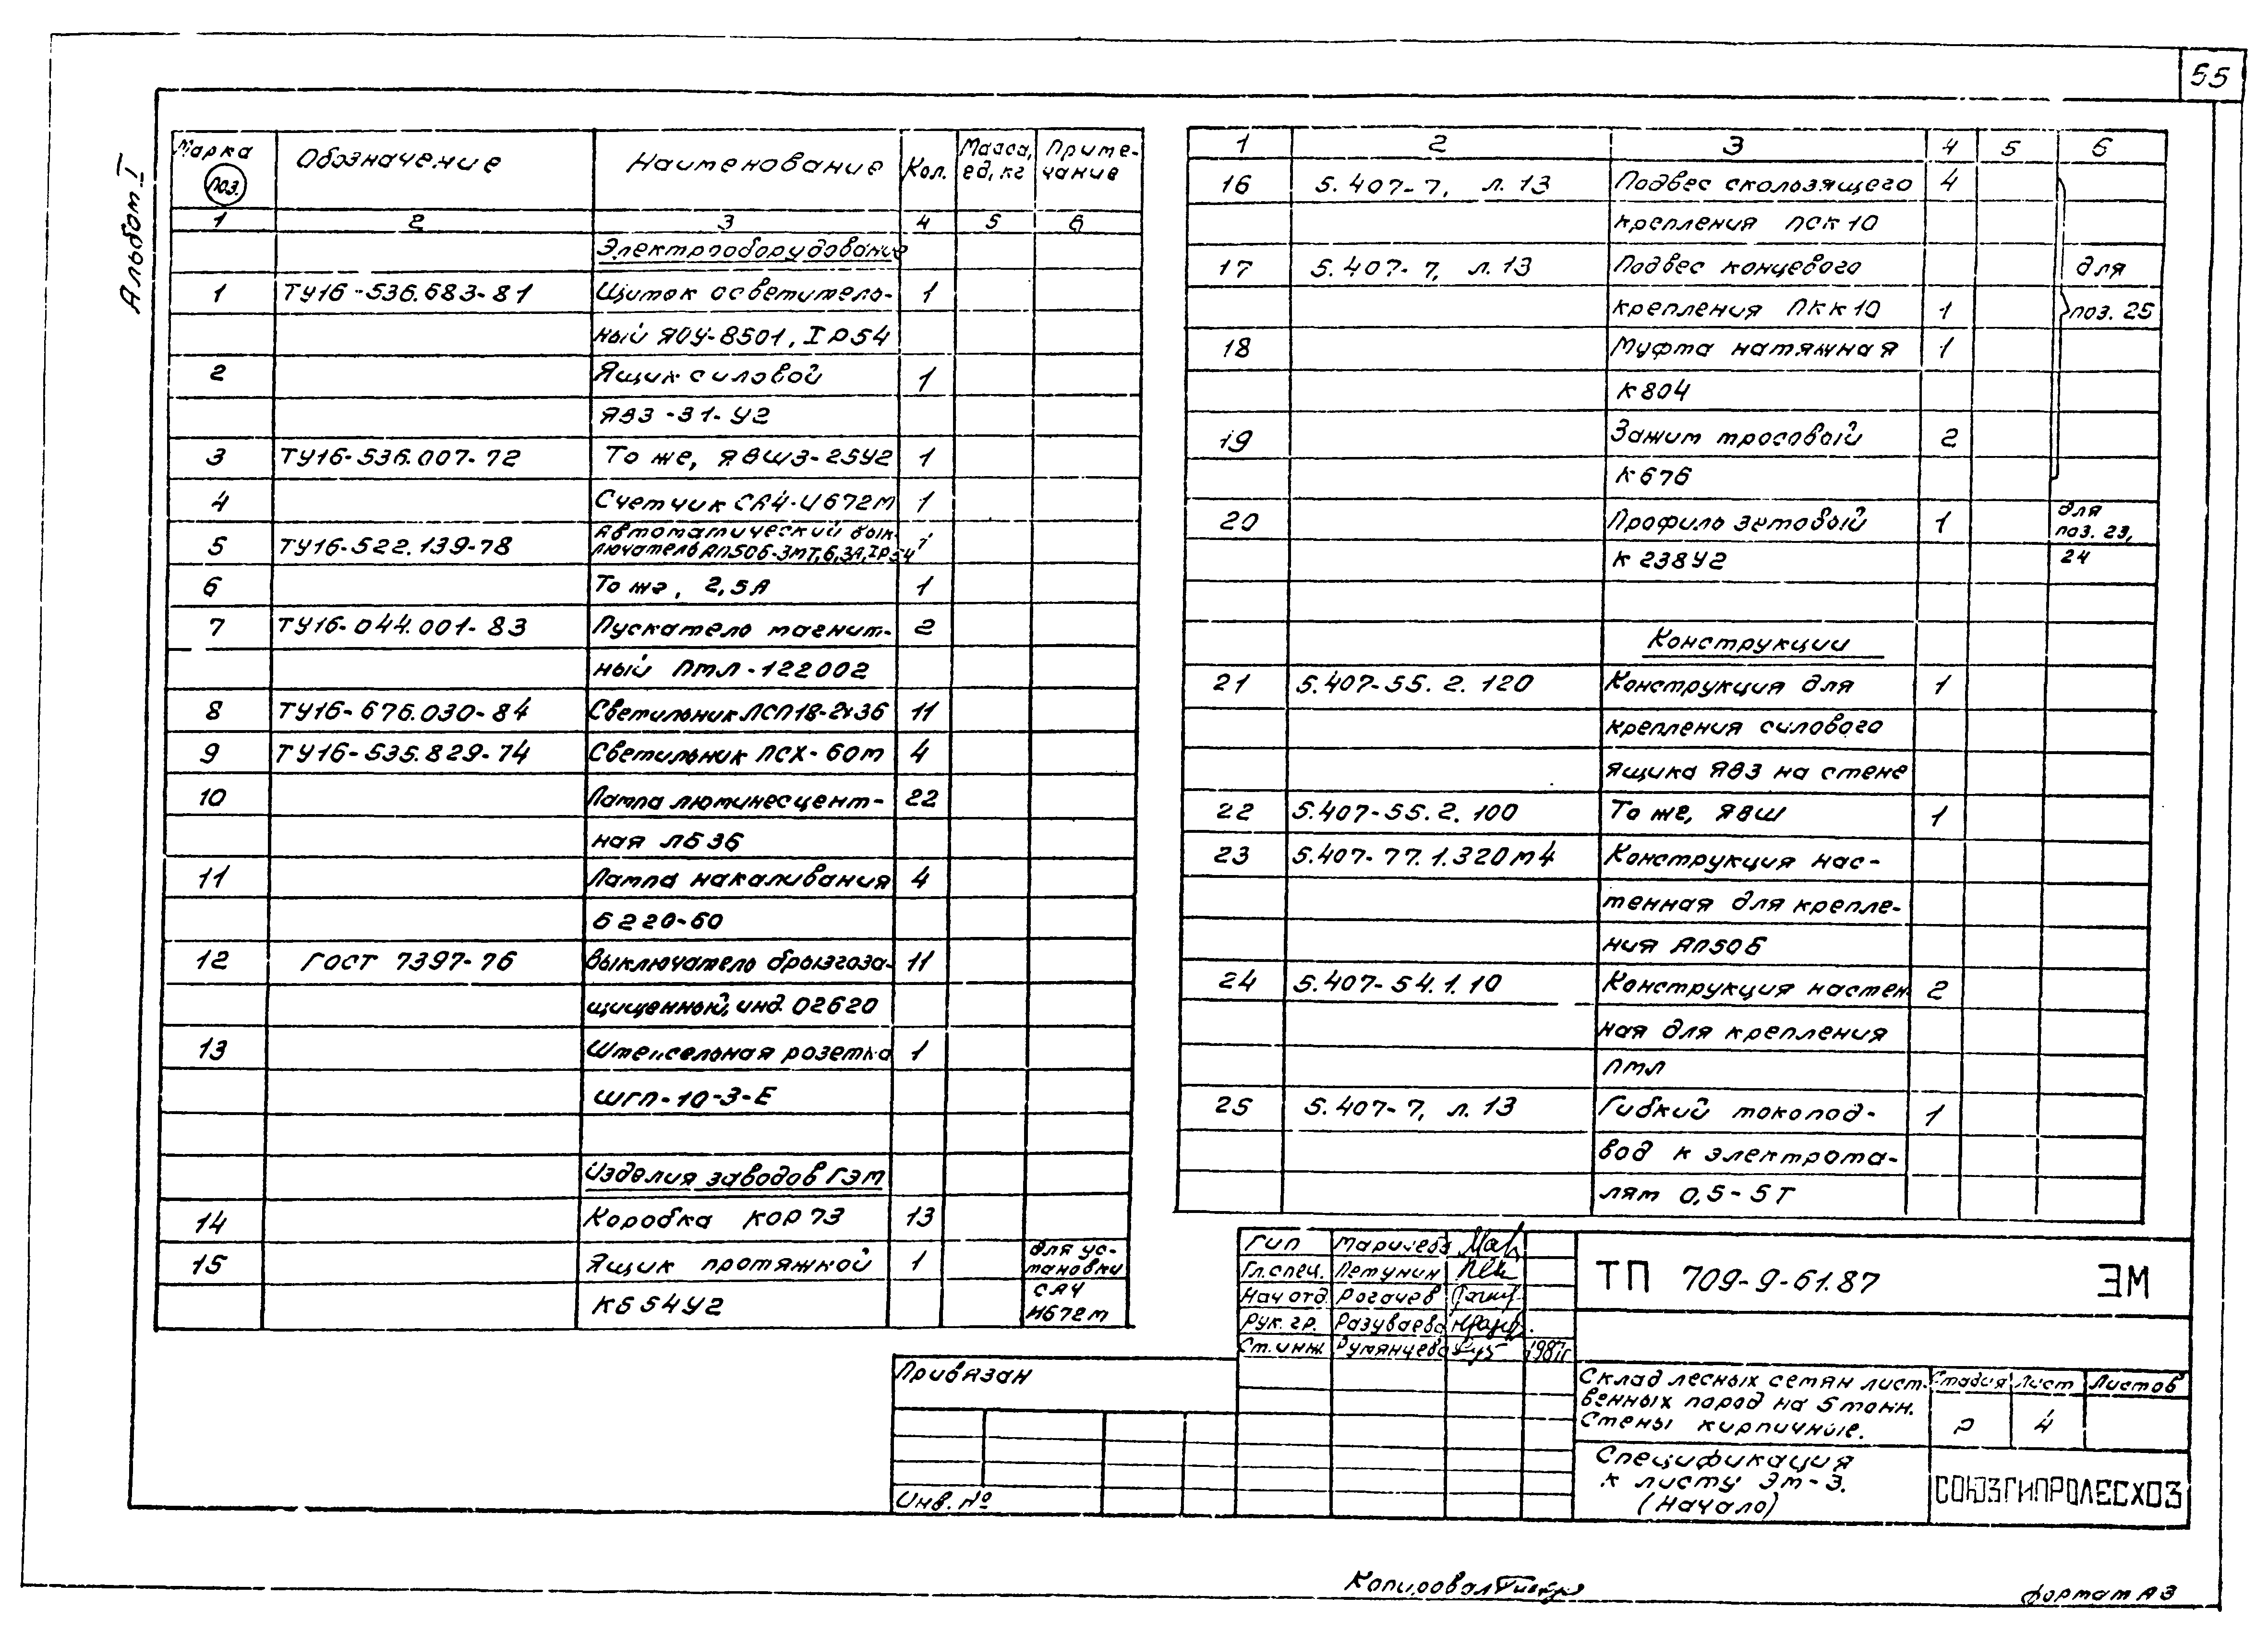 55
Альбом I
Марка поз. Обозначение Наименование Кол. Масса, ед, кг Приме-чание
1 2 3 4 5 6
Электрооборудование
1 ТУ16-536.683-81 Щиток осветитель- 1
ный ЯОУ-8501, IP54
2 Ящик силовой 1
ЯВЗ-31-У2
3 ТУ16-536.007-72 То же, ЯВШ3-25У2 1
4 Счетчик СА4-И672М 1
Автоматический вык-
5 ТУ16-522.139-78 лючатель АП50Б-3МТ, 6,3А, IP54 1
6 То же, 2,5А 1
7 ТУ16-044.001-83 Пускатель магнит- 2
ный ПМЛ-122002
8 ТУ16-676.030-84 Светильник ЛСП18-2х36 11
9 ТУ16-535.829-74 Светильник ПСХ-60М 4
10 Лампа люминесцент- 22
ная ЛБ36
11 Лампа накаливания 4
Б220-60
12 ГОСТ 7397-76 Выключатель брызгоза- 11
щищенный, инд. 02620
13 Штепсельная розетка 1
ШГП-10-3-Е
Изделия заводов ГЭМ
14 Коробка КОР73 13
15 Ящик протяжной 1 для ус-
тановки
К654У2 СА4
И672М
1 2 3 4 5 6
16 5.407-7, л.13 Подвес скользящего 4
крепления ПСК10
17 5.407-7, л.13 Подвес концевого для
крепления ПКК10 1 поз. 25
18 Муфта натяжная 1
К804
19 Зажим тросовый 2
К676
20 Профиль зетовый 1 для
поз. 23,
К238У2 24
Конструкции
21 5.407-55.2.120 Конструкция для 1
крепления силового
ящика ЯВЗ на стене
22 5.407-55.2.100 То же, ЯВШ 1
23 5.407-77.1.320М4 Конструкция нас-
тенная для крепле-
ния АП50Б
24 5.407-54.1.10 Конструкция настен 2
ная для крепления
ПМЛ
25 5.407-7, л.13 Гибкий токопод- 1
вод к электрота-
лям 0,5-5Т
Гип Маричева
Гл.спец. Петунин
Нач отд Рогачев
Рук. гр. Разуваева
Ст. инж. Румянцева 1987г
ТП 709-9-61.87 ЭМ
Склад лесных семян лист-
венных пород на 5 тонн.
Стены кирпичные.
Стадия Лист Листов
Р 4
Спецификация
к листу ЭМ-3.
(Начало)
СОЮЗГИПРОЛЕСХОЗ
Привязан
Инв. №
Копировал
формат А3